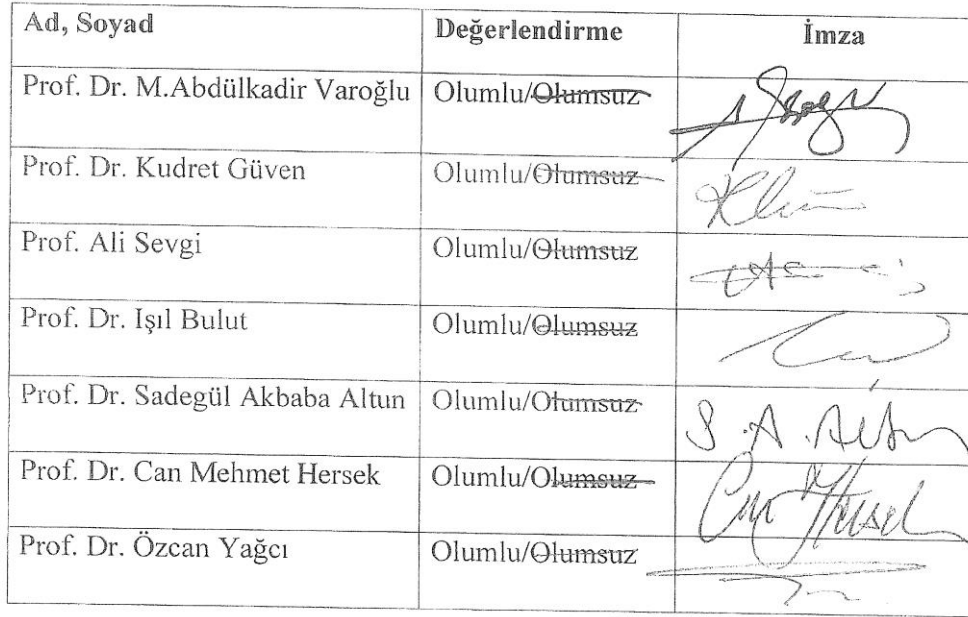 Ad, Soyad Değerlendirme İmza
Prof. Dr. M.Abdülkadir Varoğlu Olumlu/Olumsuz
Prof. Dr. Kudret Güven Olumlu/Olumsuz
Prof. Ali Sevgi Olumlu/Olumsuz
Prof. Dr. Işıl Bulut Olumlu/Olumsuz
Prof. Dr. Sadegül Akbaba Altun Olumlu/Olumsuz S.A. Altun
Prof. Dr. Can Mehmet Hersek Olumlu/Olumsuz Can Hersek
Prof. Dr. Özcan Yağcı Olumlu/Olumsuz